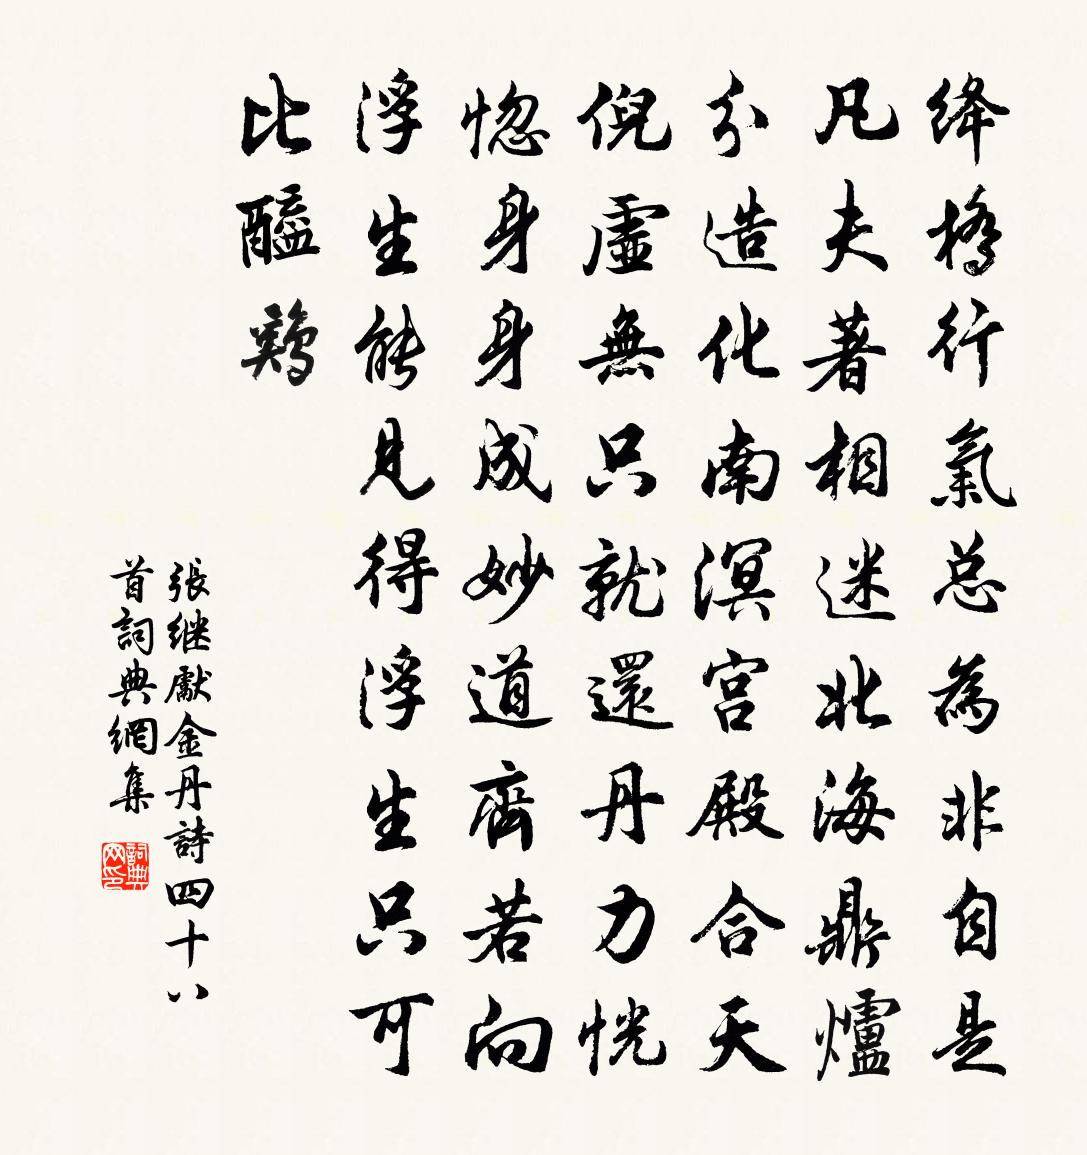 绛橋行氣总為非自是
凡夫著相迷北海鼎爐
分造化南溟宫殿合天
倪虛無只就還丹力恍
惚身身成妙道齊若向
浮生能見得浮生只可
比醯鷄
張继獻金丹詩四十八
首詞典網集
詞典网印